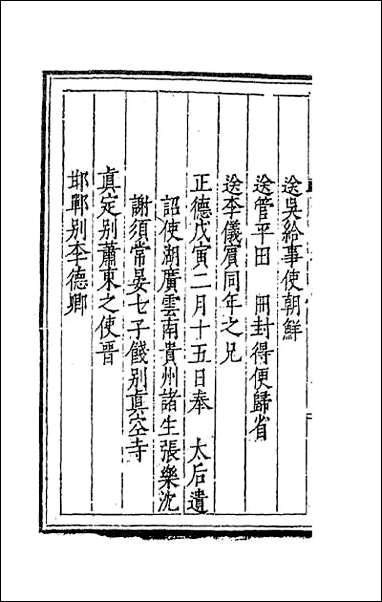 送吳給事使朝鮮
送管平田　冊封得便歸省
送李儀賔同年之兄
正德戊寅二月十五日奉　太后遺
詔使湖廣雲南貴州諸生張樂沈
謝須常晏七子餞別真空寺
真定別蕭東之使晉
邯鄲別李德卿